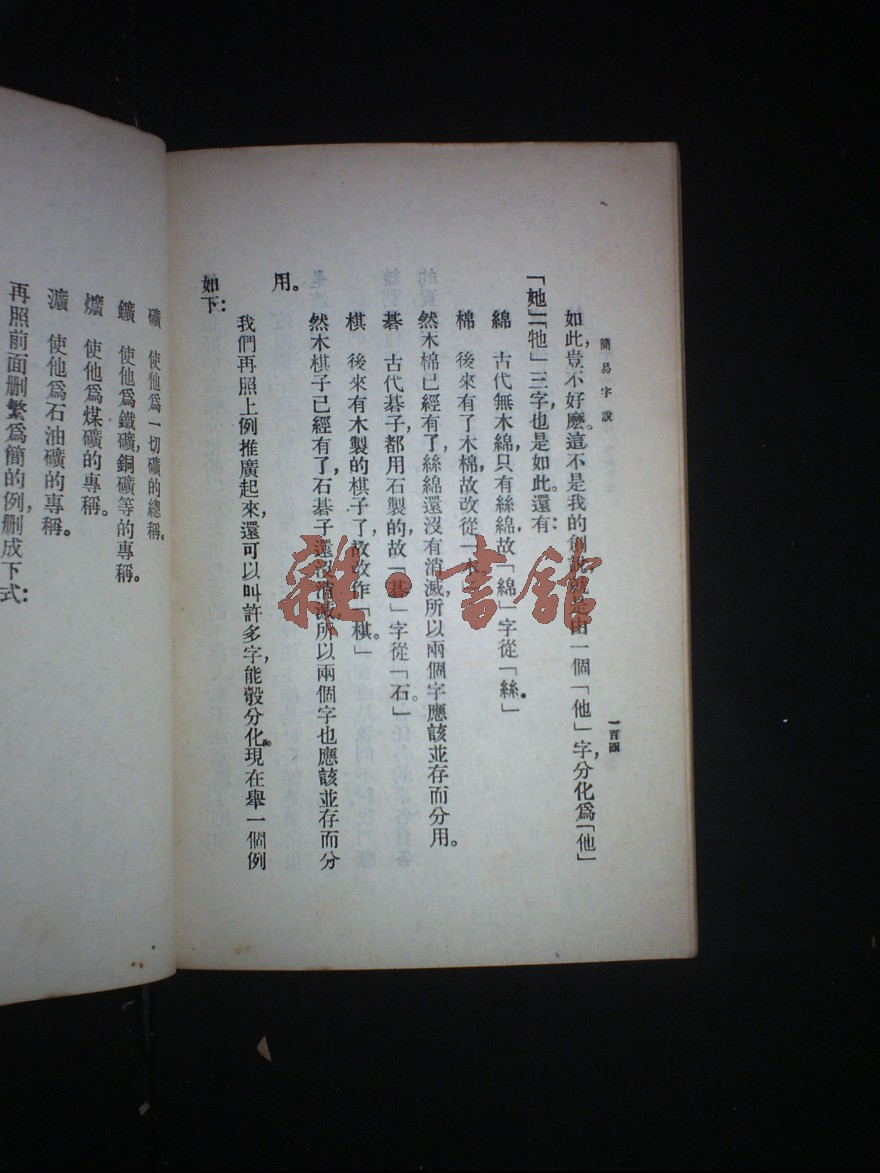 簡易字說
一百四
如此，豈不好麽。這不是我的創說，就是由一個「他」字，分化爲「他」
「她」「牠」三字，也是如此。還有：
綿　古代無木綿，只有絲綿，故「綿」字從「絲。」
棉　後來有了木棉，故改從「木。」
然木棉已經有了，絲綿還沒有消滅，所以兩個字應該並存而分用。
碁　古代碁子，都用石製的，故「碁」字從「石。」
棋　後來有木製的棋子了，故改作「棋。」
然木棋子已經有了，石碁子還沒消滅，所以兩個字也應該並存而分
用。
我們再照上例推廣起來，還可以叫許多字，能彀分化。現在舉一個例
如下：
礦　使他爲一切礦的總稱。
鑛　使他爲鐵礦，銅礦等的專稱。
爌　使他爲煤礦的專稱。
瀇　使他爲石油礦的專稱。
再照前面刪繁爲簡的例，刪成下式：
雜·書館